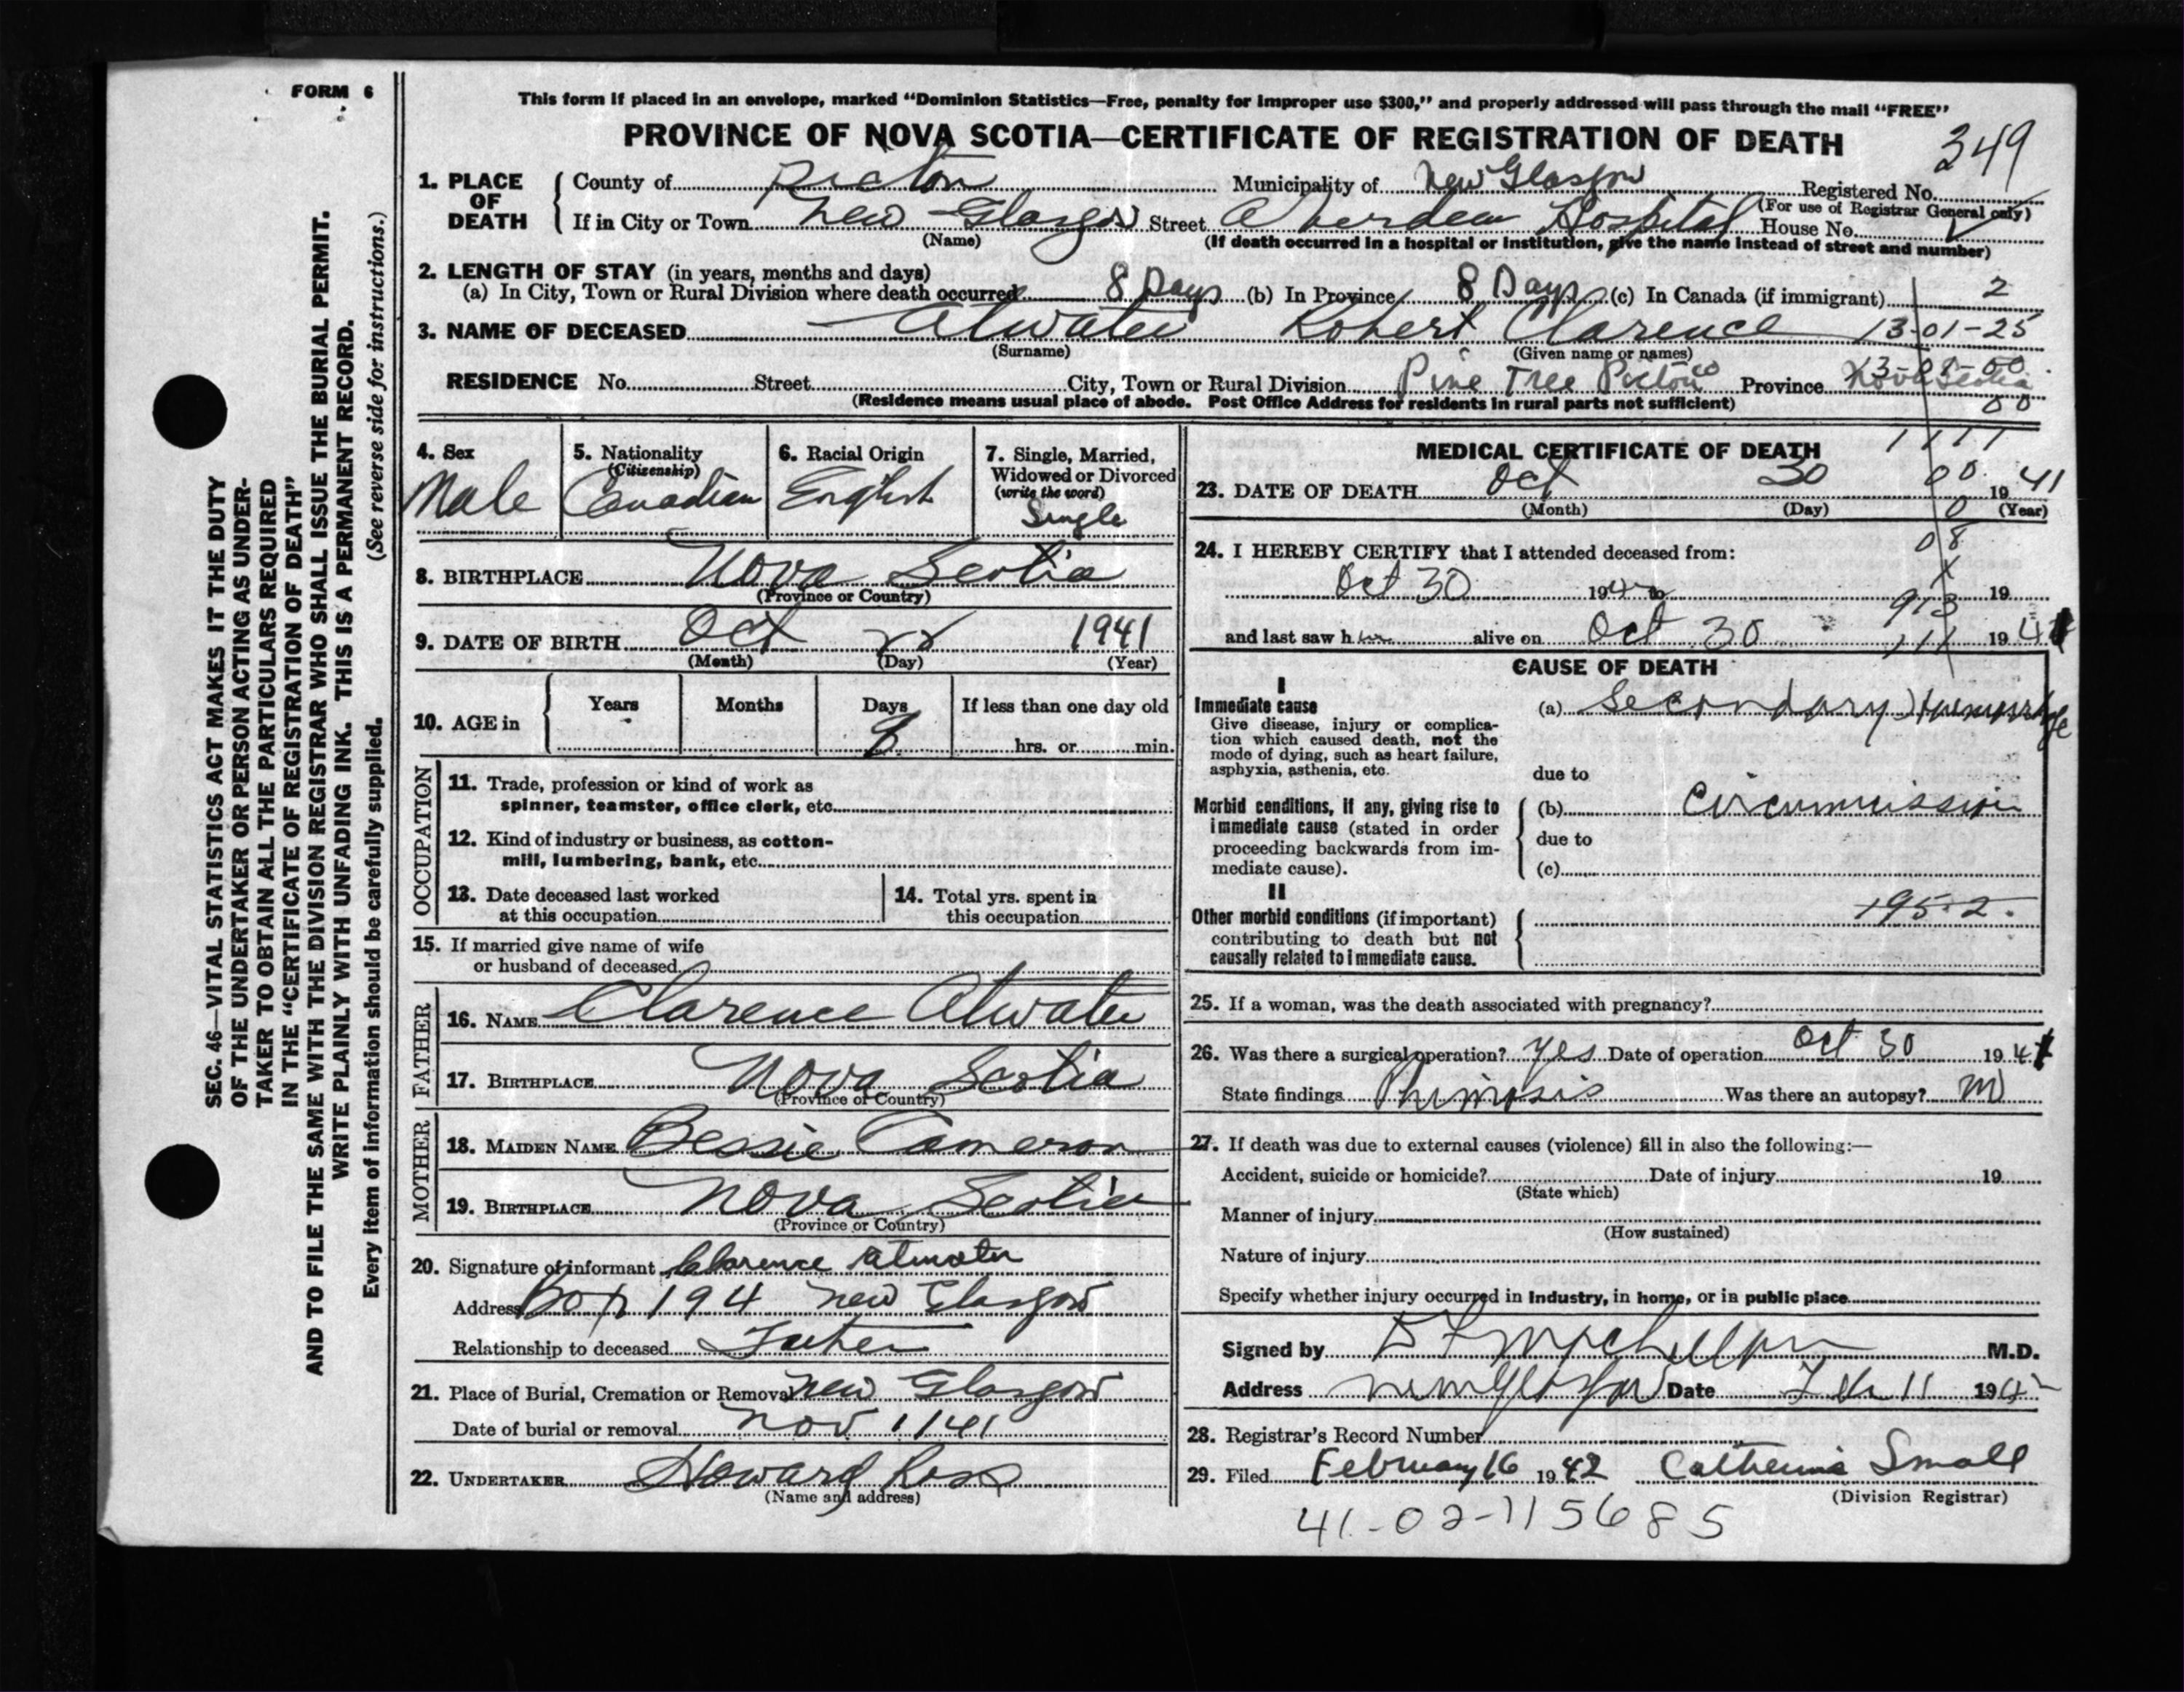 FORM 6
This form if placed in an envelope, marked “Dominion Statistics—Free, penalty for improper use $300,” and properly addressed will pass through the mail “FREE”
PROVINCE OF NOVA SCOTIA—CERTIFICATE OF REGISTRATION OF DEATH
349
1. PLACE OF DEATH
County of Pictou Municipality of New Glasgow Registered No.
(For use of Registrar General only)
If in City or Town New Glasgow Street Aberdeen Hospital House No.
(Name) (If death occurred in a hospital or institution, give the name instead of street and number)
2. LENGTH OF STAY (in years, months and days)
(a) In City, Town or Rural Division where death occurred 8 Days (b) In Province 8 Days (c) In Canada (if immigrant) 2
3. NAME OF DECEASED Atwater Robert Clarence 13-01-25
(Surname) (Given name or names)
RESIDENCE No. Street City, Town or Rural Division Pine Tree Pictou Co Province Nova Scotia
(Residence means usual place of abode. Post Office Address for residents in rural parts not sufficient)
00
4. Sex Male
5. Nationality (Citizenship) Canadian
6. Racial Origin English
7. Single, Married, Widowed or Divorced (write the word) Single
8. BIRTHPLACE Nova Scotia
(Province or Country)
9. DATE OF BIRTH Oct 22 1941
(Month) (Day) (Year)
10. AGE in Years Months Days 8 If less than one day old hrs. or min.
OCCUPATION
11. Trade, profession or kind of work as
spinner, teamster, office clerk, etc.
12. Kind of industry or business, as cotton-
mill, lumbering, bank, etc.
13. Date deceased last worked
at this occupation
14. Total yrs. spent in
this occupation
15. If married give name of wife
or husband of deceased
FATHER
16. NAME Clarence Atwater
17. BIRTHPLACE Nova Scotia
(Province or Country)
MOTHER
18. MAIDEN NAME Bessie Cameron
19. BIRTHPLACE Nova Scotia
(Province or Country)
20. Signature of informant Clarence Atwater
Address Box 194 New Glasgow
Relationship to deceased Father
21. Place of Burial, Cremation or Removal New Glasgow
Date of burial or removal Nov 1/41
22. UNDERTAKER Howard Ross
(Name and address)
MEDICAL CERTIFICATE OF DEATH
1111
23. DATE OF DEATH Oct 30 00 1941
(Month) (Day) 0 (Year)
08
24. I HEREBY CERTIFY that I attended deceased from:
Oct 30 194 to 19
913
and last saw h alive on Oct 30 111 1941
CAUSE OF DEATH
I
Immediate cause
Give disease, injury or complica-
tion which caused death, not the
mode of dying, such as heart failure,
asphyxia, asthenia, etc.
(a) Secondary Hemorrhage
due to
Morbid conditions, if any, giving rise to
immediate cause (stated in order
proceeding backwards from im-
mediate cause).
(b) Circumcission
due to
(c)
II
Other morbid conditions (if important)
contributing to death but not
causally related to immediate cause.
195.2.
25. If a woman, was the death associated with pregnancy?
26. Was there a surgical operation? Yes Date of operation Oct 30 1941
State findings Phimosis Was there an autopsy? No
27. If death was due to external causes (violence) fill in also the following:—
Accident, suicide or homicide? Date of injury 19
(State which)
Manner of injury
(How sustained)
Nature of injury
Specify whether injury occurred in industry, in home, or in public place
Signed by M.D.
Address New Glasgow Date Feb 11 1942
28. Registrar's Record Number
29. Filed February 16 1942 Catherine Small
(Division Registrar)
41-02-115685
SEC. 46—VITAL STATISTICS ACT MAKES IT THE DUTY
OF THE UNDERTAKER OR PERSON ACTING AS UNDER-
TAKER TO OBTAIN ALL THE PARTICULARS REQUIRED
IN THE “CERTIFICATE OF REGISTRATION OF DEATH”
AND TO FILE THE SAME WITH THE DIVISION REGISTRAR WHO SHALL ISSUE THE BURIAL PERMIT.
WRITE PLAINLY WITH UNFADING INK. THIS IS A PERMANENT RECORD.
Every item of information should be carefully supplied. (See reverse side for instructions.)